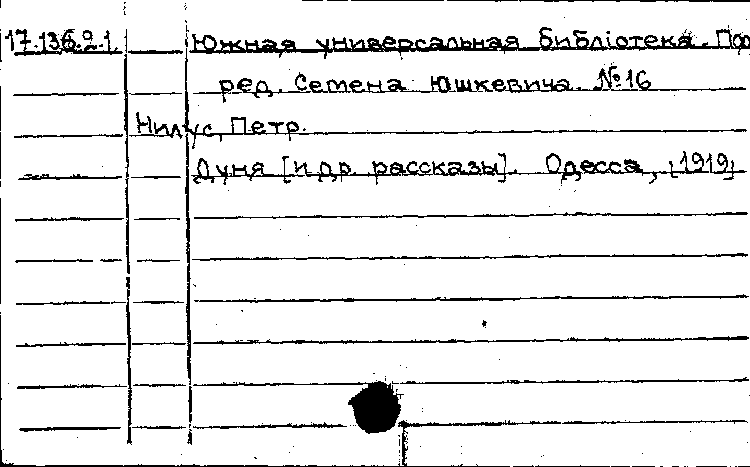 17.136.2.1. Южная универсальная библіотека. Под
ред. Семена Юшкевича. №16
Нилус, Петр.
Дуня [и др. рассказы]. Одесса, [1919]